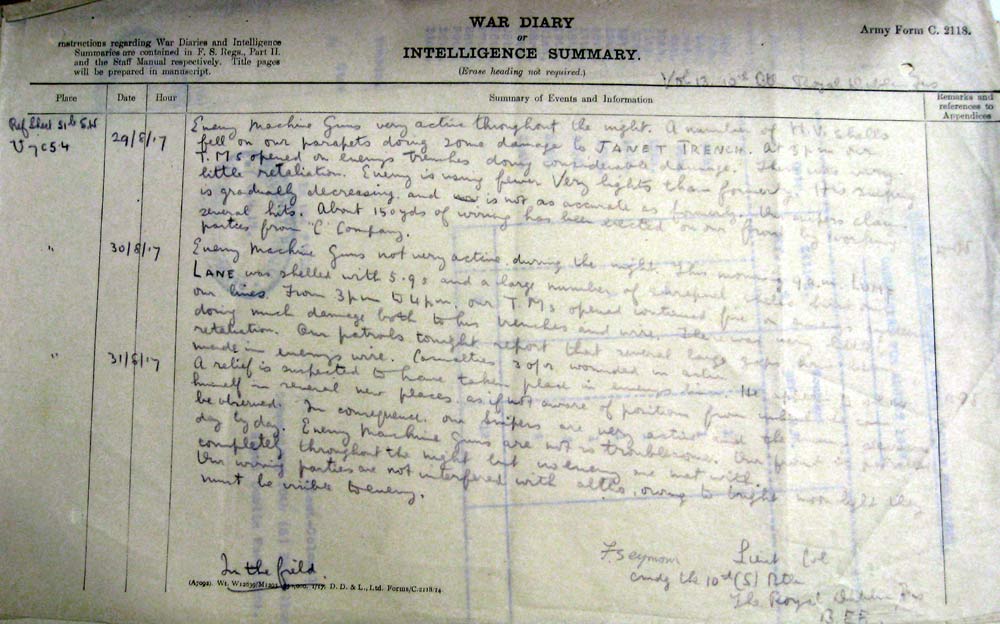 WAR DIARY
or
INTELLIGENCE SUMMARY.
(Erase heading not required.)
Army Form C. 2118.
Instructions regarding War Diaries and Intelligence
Summaries are contained in F. S. Regs., Part II.
and the Staff Manual respectively. Title pages
will be prepared in manuscript.
Place
Date
Hour
Summary of Events and Information
Remarks and
references to
Appendices
Ref Sheet 51b SW
U7c54
29/8/17
Enemy Machine Guns very active throughout the night. A number of H.V. shells
fell on our parapets doing some damage to JANET TRENCH. At 3 pm our
T.M.s opened on enemys trenches doing considerable damage. There was very
little retaliation. Enemy is using fewer Very lights than formerly. His sniping
is gradually decreasing and is not as accurate as formerly. Our snipers claim
several hits. About 150 yds of wiring has been erected on our front by working
parties from "C" Company.
" 30/8/17
Enemy Machine Guns not very active during the night. This morning 9 a.m. LUMP
LANE was shelled with 5.9s and a large number of shrapnel shells burst over
our lines. From 3 pm to 4 pm. our T.Ms opened continued fire on enemys
doing much damage both to his trenches and wire. There was very little
retaliation. Our patrols tonight report that several large gaps have been
made in enemys wire. Casualties 3 o/r wounded in action
" 31/8/17
A relief is suspected to have taken place in enemys lines. He appears to
himself in several new places as if not aware of positions from which he can
be observed. In consequence our Snipers are very active and
day by day. Enemy Machine Guns are not so troublesome. Our front is patrolled
completely throughout the night but no enemy are met with.
Our wiring parties are not interfered with altho, owing to bright moonlight they
must be visible to enemy.
In the field.
F. Seymour Lieut Col
Cmdg the 10th (S) Bttn
The Royal Dublin Fus
B.E.F.
D. D. & L., Ltd. Forms/C.2118/14